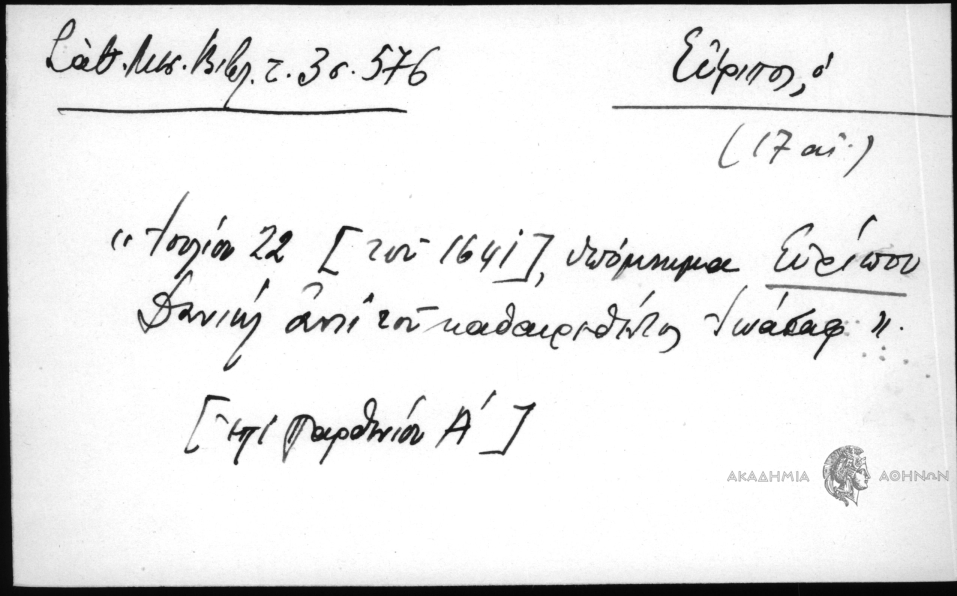 Σάθ. Μεσ. Βιβλ. τ. 3 σ. 576
Εὔριπος, ὁ
(17 αἰ.)
"Ἰουλίου 22 [τοῦ 1641], ὑπόμνημα Εὐρίπου
Δανιὴλ ἀντὶ τοῦ καθαιρεθέντος Ἰωάσαφ".
[ἐπὶ Παρθενίου Α']
ΑΚΑΔΗΜΙΑ ΑΘΗΝΩΝ